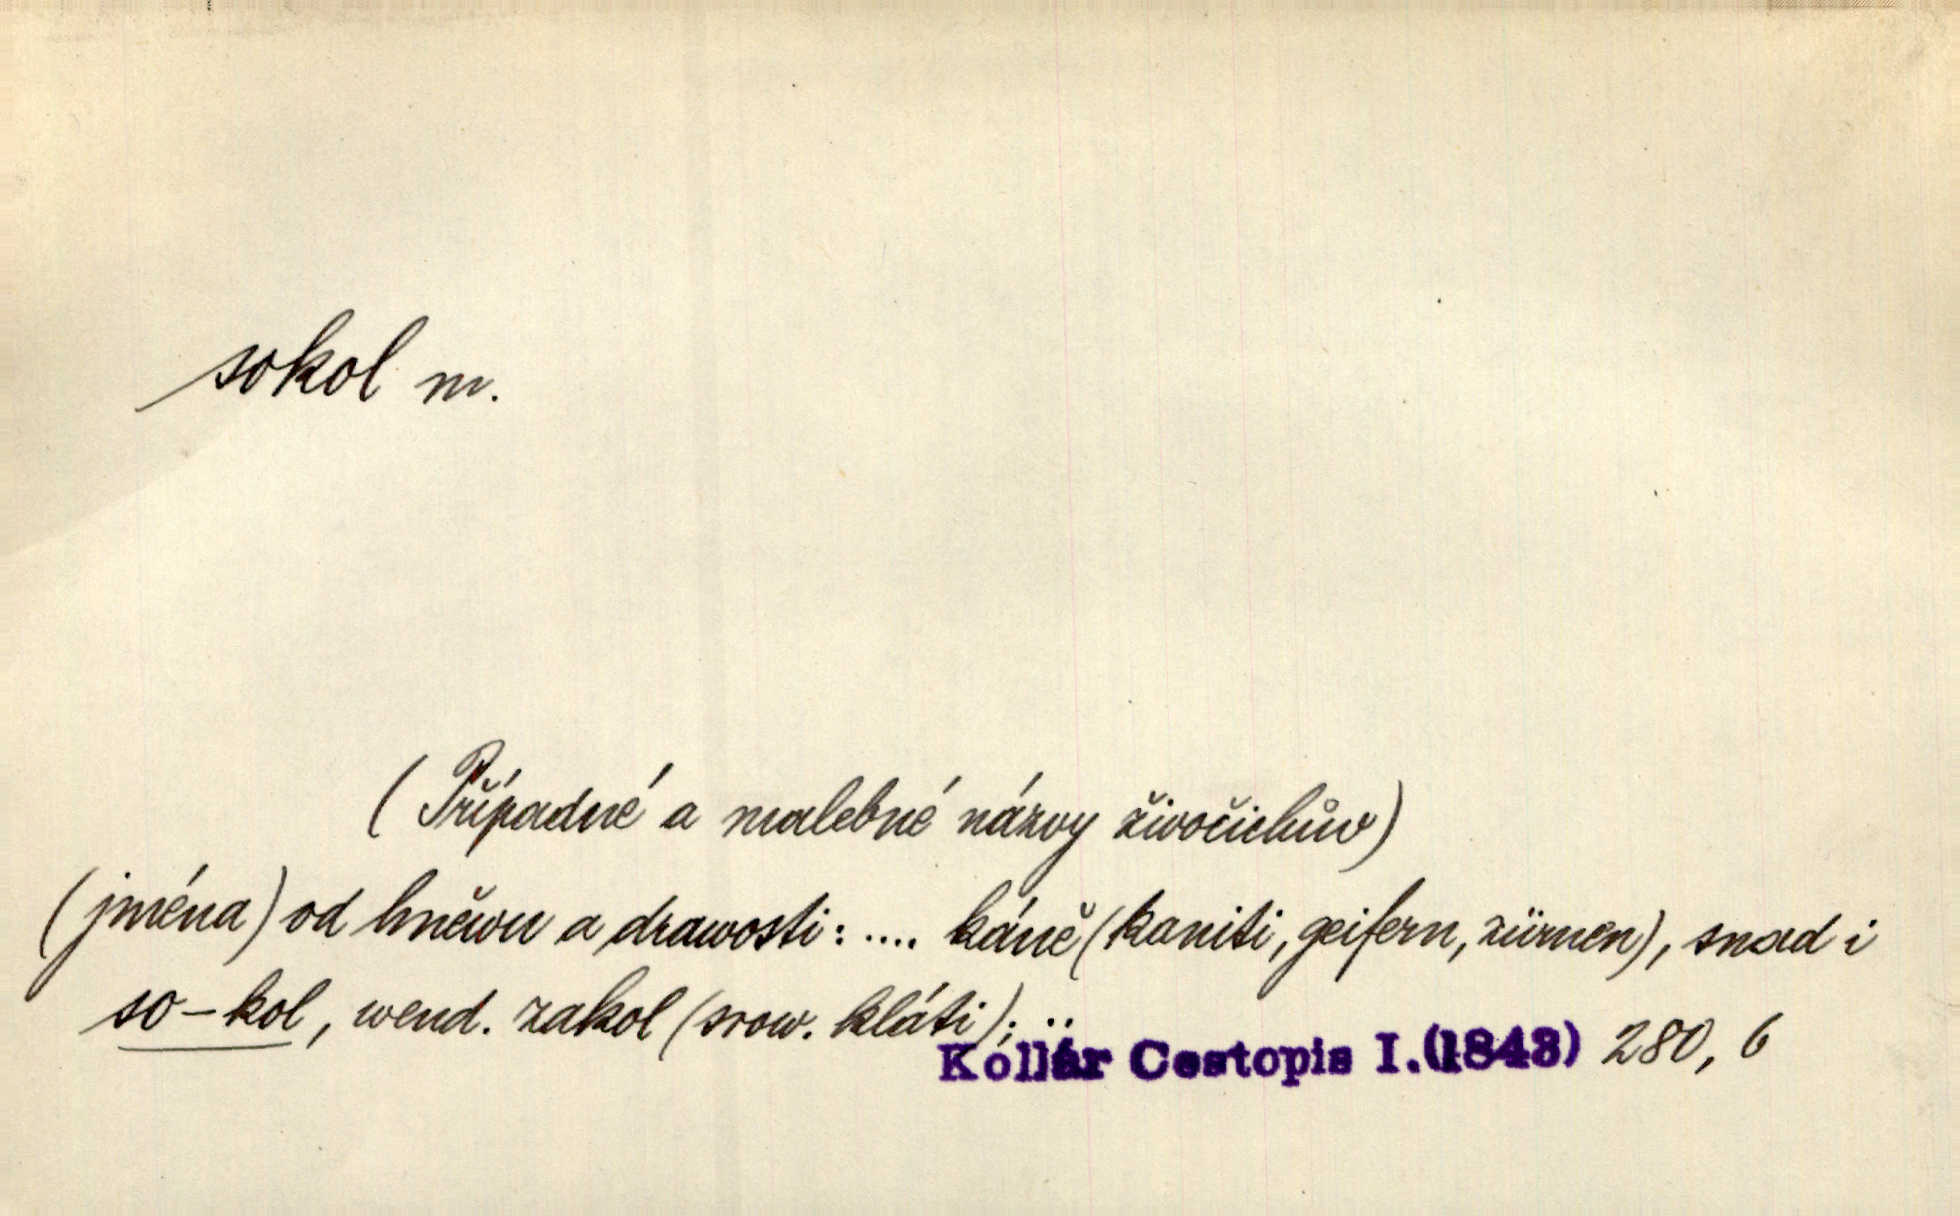 sokol m.
(Případné a malebné názvy živočichův)
(jména) od hněwu a drawosti: .... káně (kaniti, geifern, zürnen), snad i
so-kol, wend. zakol (srow. kláti); ..
Kollár Cestopis I.(1843) 280, 6